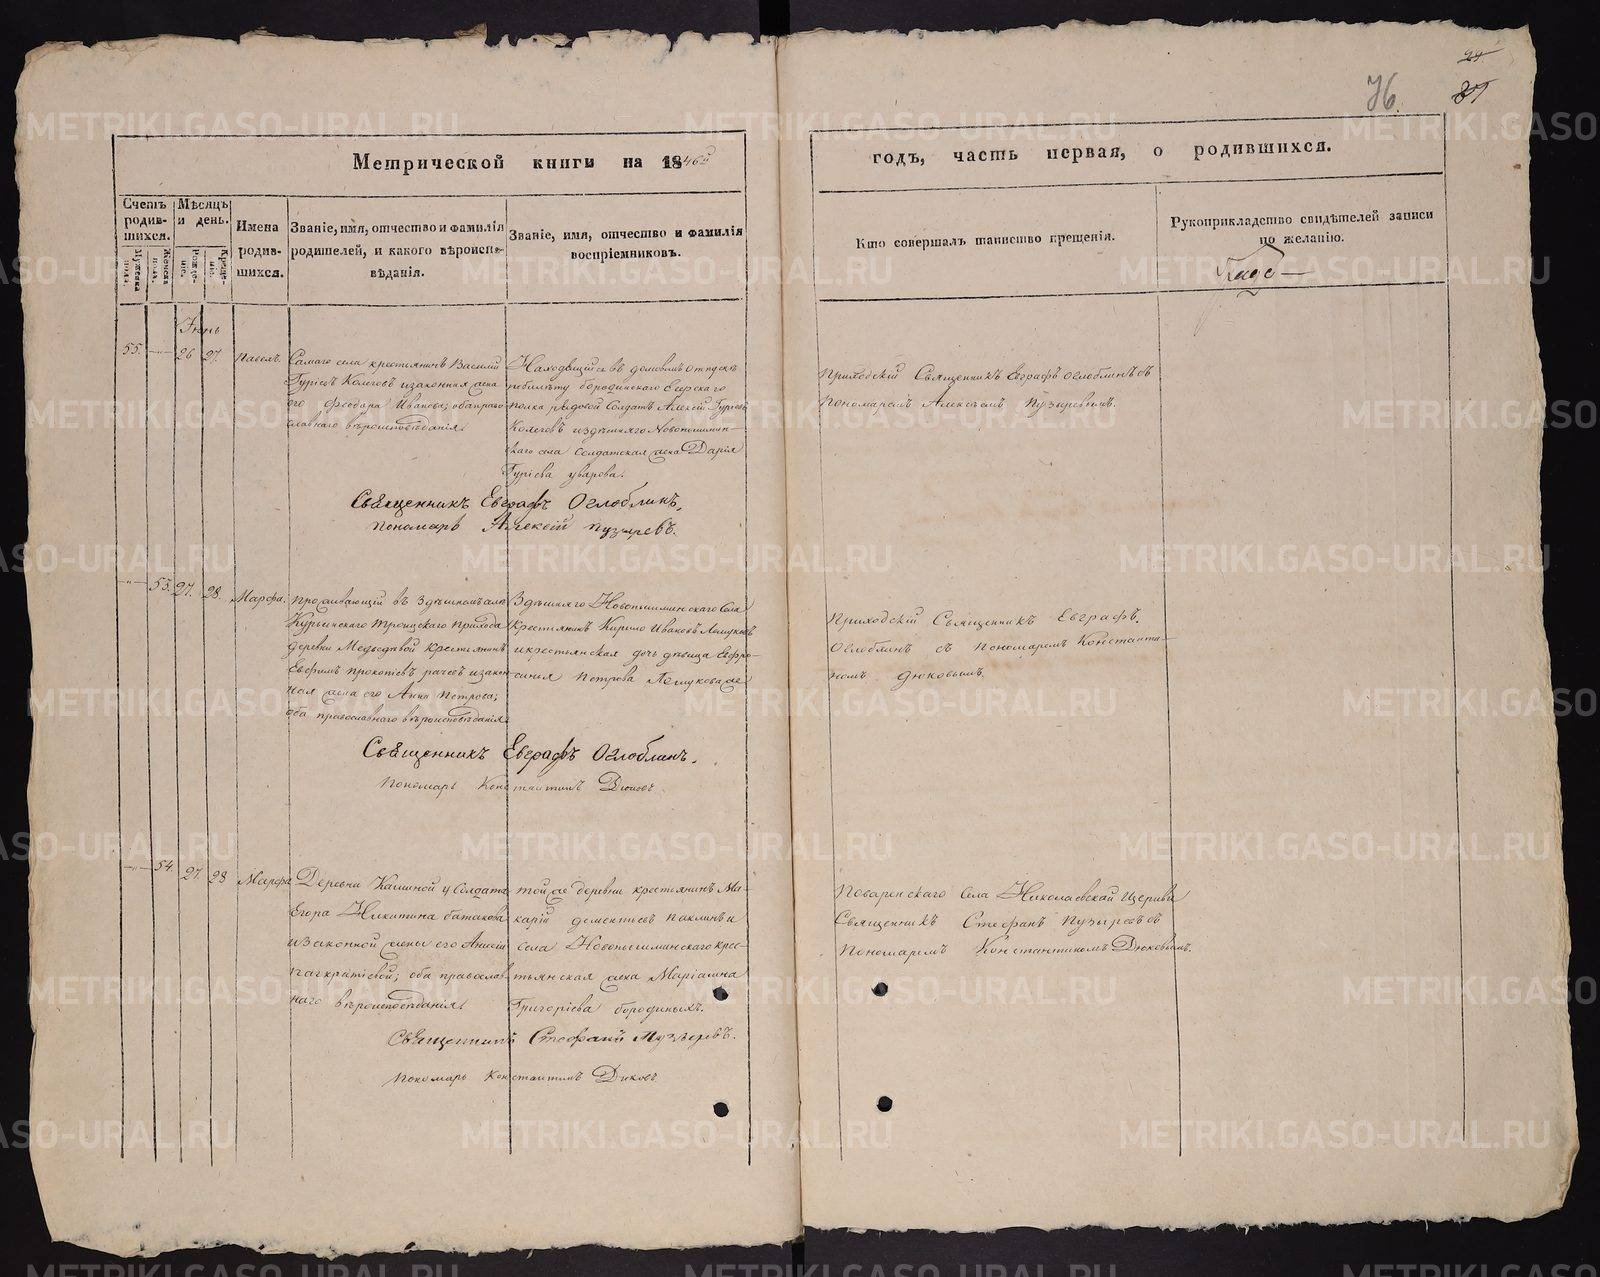 76.
Метрической книги на 1846й
годъ, часть первая, о родившихся.
Счетъ родившихся.
Мужеска пола.
Женска пола.
Мѣсяцъ и день.
Рожденіе.
Крещеніе.
Имена родившихся.
Званіе, имя, отчество и фамилія родителей, и какого вѣроисповѣданія.
Званіе, имя, отчество и фамилія воспріемниковъ.
Кто совершалъ таинство крещенія.
Рукоприкладство свидѣтелей записи по желанію.
Іюнь
55. 26 27. Павелъ.
Самаго села крестьянинъ Василій
Гуріевъ Колеговъ изаконная жена
его Феодора Иванова; оба православнаго вѣроисповѣданія
Находящийся въ домовомъ отпускѣ
побилѣту бородинскаго Егерскаго
полка рядовой Солдатъ Алексѣй Гуріевъ
Колеговъ издѣшняго Новопышминскаго села Солдатская жена Дарія
Гуріева уварова.
Приходскій Священникъ Евграфъ Оглоблинъ съ
Пономаремъ Алексѣемъ Пузыревымъ.
Священникъ Евграфъ Оглоблинъ,
пономарь Алексѣй пузыревъ.
53. 27. 28. Марфа.
проживающій въ Здѣшнемъ селѣ
Курьинскаго Троицскаго прихода
деревни Медведевой крестьянинъ
Евфимъ прокопіевъ рачевъ изаконная жена его Анна Петрова;
оба православнаго вѣроисповѣданія
Здѣшняго Новопышминскаго Села
Крестьянинъ Кирило Ивановъ
икрестьянская дочь дѣвица Ефросинія Петрова
Приходскій Священникъ Евграфъ
Оглоблинъ съ пономаремъ Константиномъ дюковымъ
Священникъ Евграфъ Оглоблинъ.
Пономарь Константинъ Дюковъ
54. 27 28 Марфа
Деревни Кашиной у Солдата
Егора Никитина батакова
изаконной жены его Анисіи
панкратіевой; оба православнаго вѣроисповѣданія
той же деревни крестьянинъ Макарій дементьевъ паклинъ и
села Новопышминскаго крестьянская жена Маріамна
Григоріева бородиныхъ.
Поваренскаго села Николаевской Церкви
Священникъ Стефанъ Пузыревъ съ
Пономаремъ Константиномъ Дюковымъ.
Священникъ Стефанъ Пузыревъ.
Пономарь Константинъ Дюковъ
METRIKI.GASO-URAL.RU